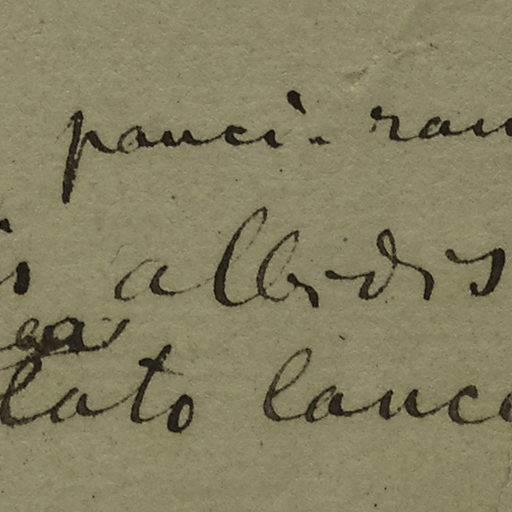 pauci. ram
is albidis
lato lance